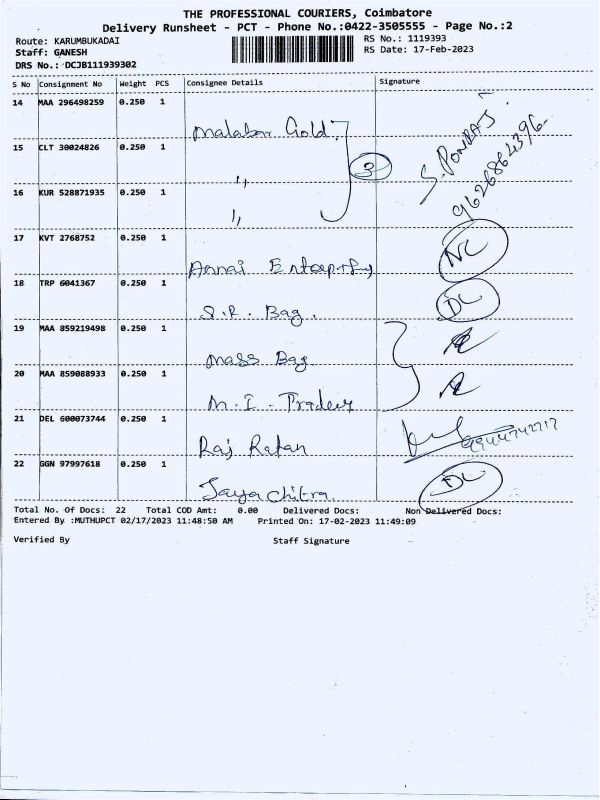 THE PROFESSIONAL COURIERS, Coimbatore
Delivery Runsheet - PCT - Phone No.:0422-3505555 - Page No.:2
Route: KARUMBUKADAI
RS No.: 1119393
Staff: GANESH
RS Date: 17-Feb-2023
DRS No.: DCJB111939302
S No Consignment No Weight PCS Consignee Details Signature
14 MAA 296498259 0.250 1
Malabar Gold
15 CLT 30024826 0.250 1
3
S. PONRAJ
9626864396
16 KUR 528871935 0.250 1
17 KVT 2768752 0.250 1
Annai NC
18 TRP 6041367 0.250 1
S.R. Bag. DL
19 MAA 859219498 0.250 1
Mass Bag
20 MAA 859088933 0.250 1
M.I.
21 DEL 600073744 0.250 1
Raj Ratan
22 GGN 97997618 0.250 1
Jaya Chitra. DL
Total No. Of Docs: 22 Total COD Amt: 0.00 Delivered Docs: Non Delivered Docs:
Entered By :MUTHUPCT 02/17/2023 11:48:50 AM Printed On: 17-02-2023 11:49:09
Verified By Staff Signature